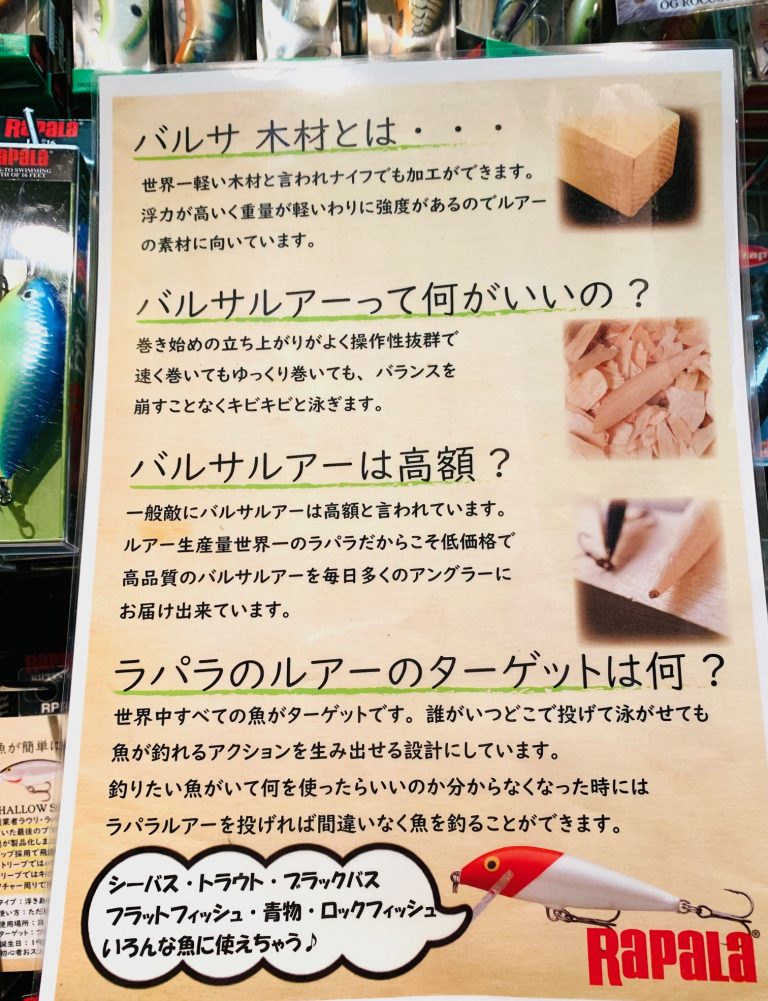 OG ROCCO
RAPALA
RAPALA
TO SWIMMING
TH OF 16 FEET
バルサ 木材とは・・・
世界一軽い木材と言われナイフでも加工ができます。
浮力が高いく重量が軽いわりに強度があるのでルアー
の素材に向いています。
バルサルアーって何がいいの？
巻き始めの立ち上がりがよく操作性抜群で
速く巻いてもゆっくり巻いても、バランスを
崩すことなくキビキビと泳ぎます。
バルサルアーは高額？
一般敵にバルサルアーは高額と言われています。
ルアー生産量世界一のラパラだからこそ低価格で
高品質のバルサルアーを毎日多くのアングラーに
お届け出来ています。
ラパラのルアーのターゲットは何？
世界中すべての魚がターゲットです。誰がいつどこで投げて泳がせても
魚が釣れるアクションを生み出せる設計にしています。
釣りたい魚がいて何を使ったらいいのか分からなくなった時には
ラパラルアーを投げれば間違いなく魚を釣ることができます。
シーバス・トラウト・ブラックバス
フラットフィッシュ・青物・ロックフィッシュ
いろんな魚に使えちゃう♪
RAPALA®
魚が簡単に
HALLOW S